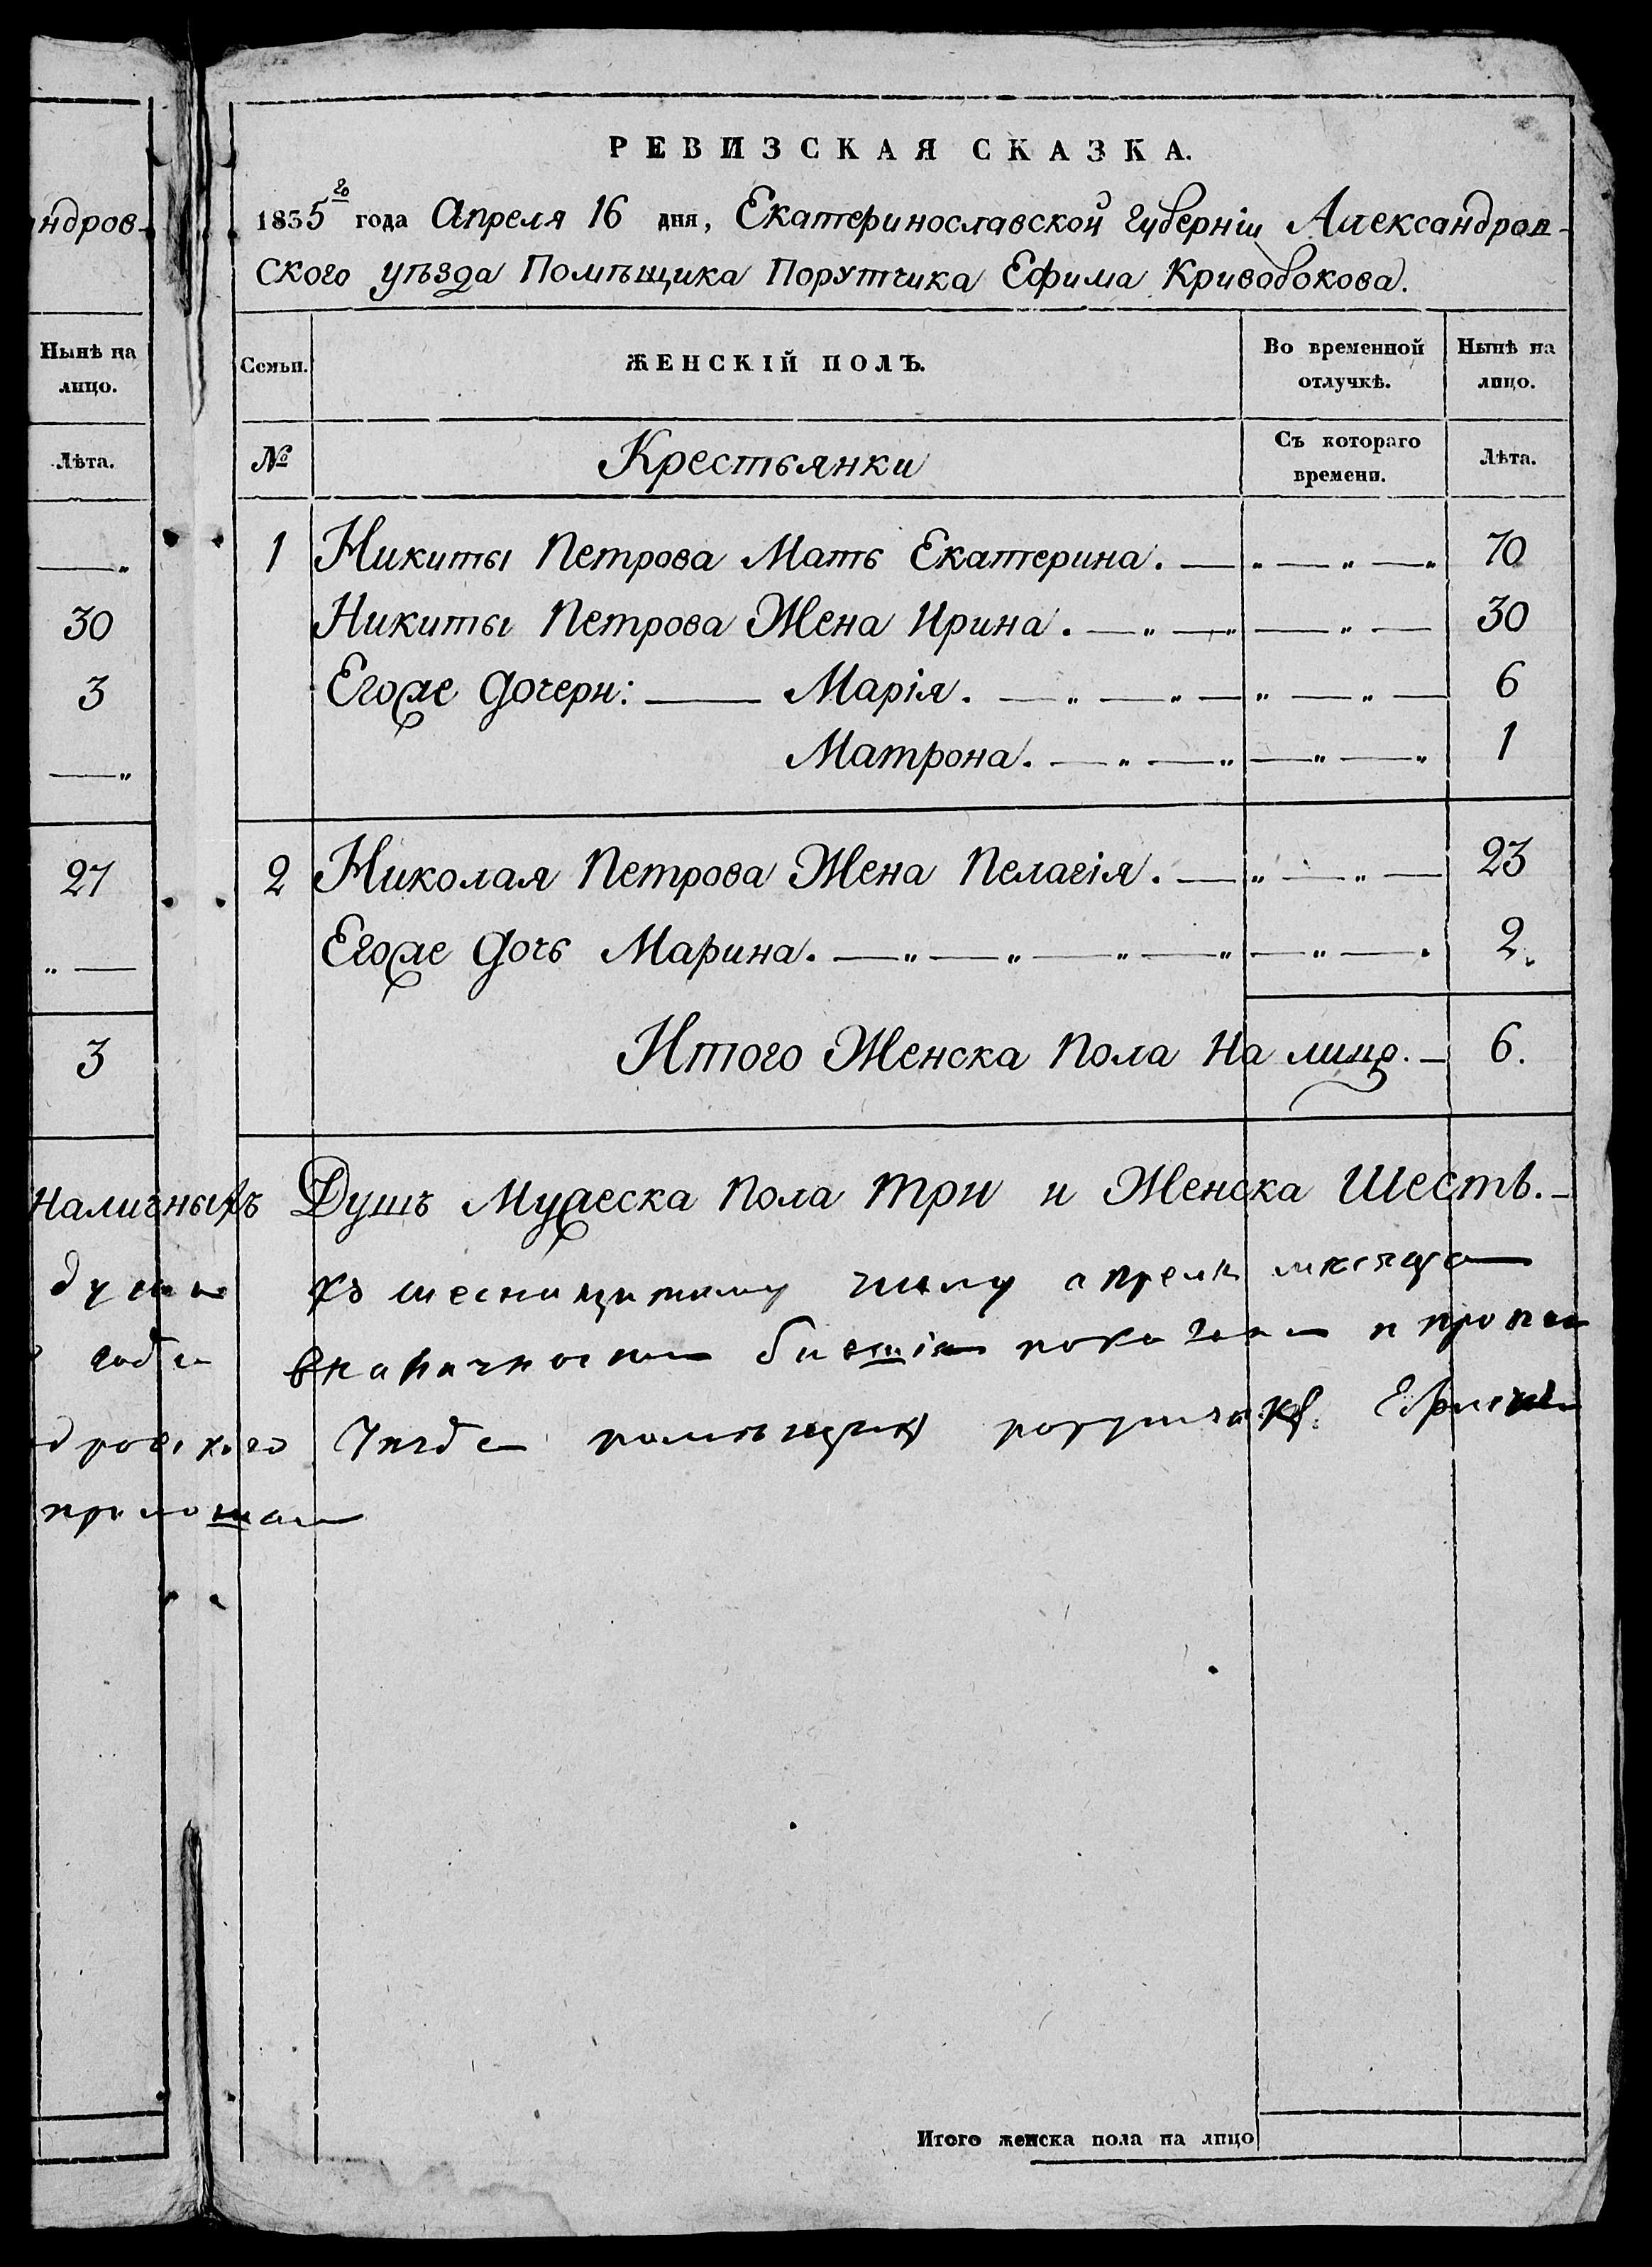 ндров-
Нынѣ на
лицо.
Лѣта.
30
3
27
3
РЕВИЗСКАЯ СКАЗКА.
1835го года Апреля 16 дня, Екатеринославской губерніи Александров-
ского уѣзда Помѣщика Порутчика Ефима Кривобокова.
Семьи. ЖЕНСКІЙ ПОЛЪ. Во временной отлучкѣ. Нынѣ на лицо.
№ Крестьянки Съ котораго времени. Лѣта.
1 Никиты Петрова Мать Екатерина. 70
Никиты Петрова Жена Ирина. 30
Егоже дочери: Марія. 6
Матрона. 1
2 Николая Петрова Жена Пелагія. 23
Егоже дочь Марина. 2.
Итого Женска пола на лицо. 6.
Наличныхъ Душъ Мужеска пола три и Женска шесть.
апреля месяца
помѣщикъ
Итого женска пола на лицо